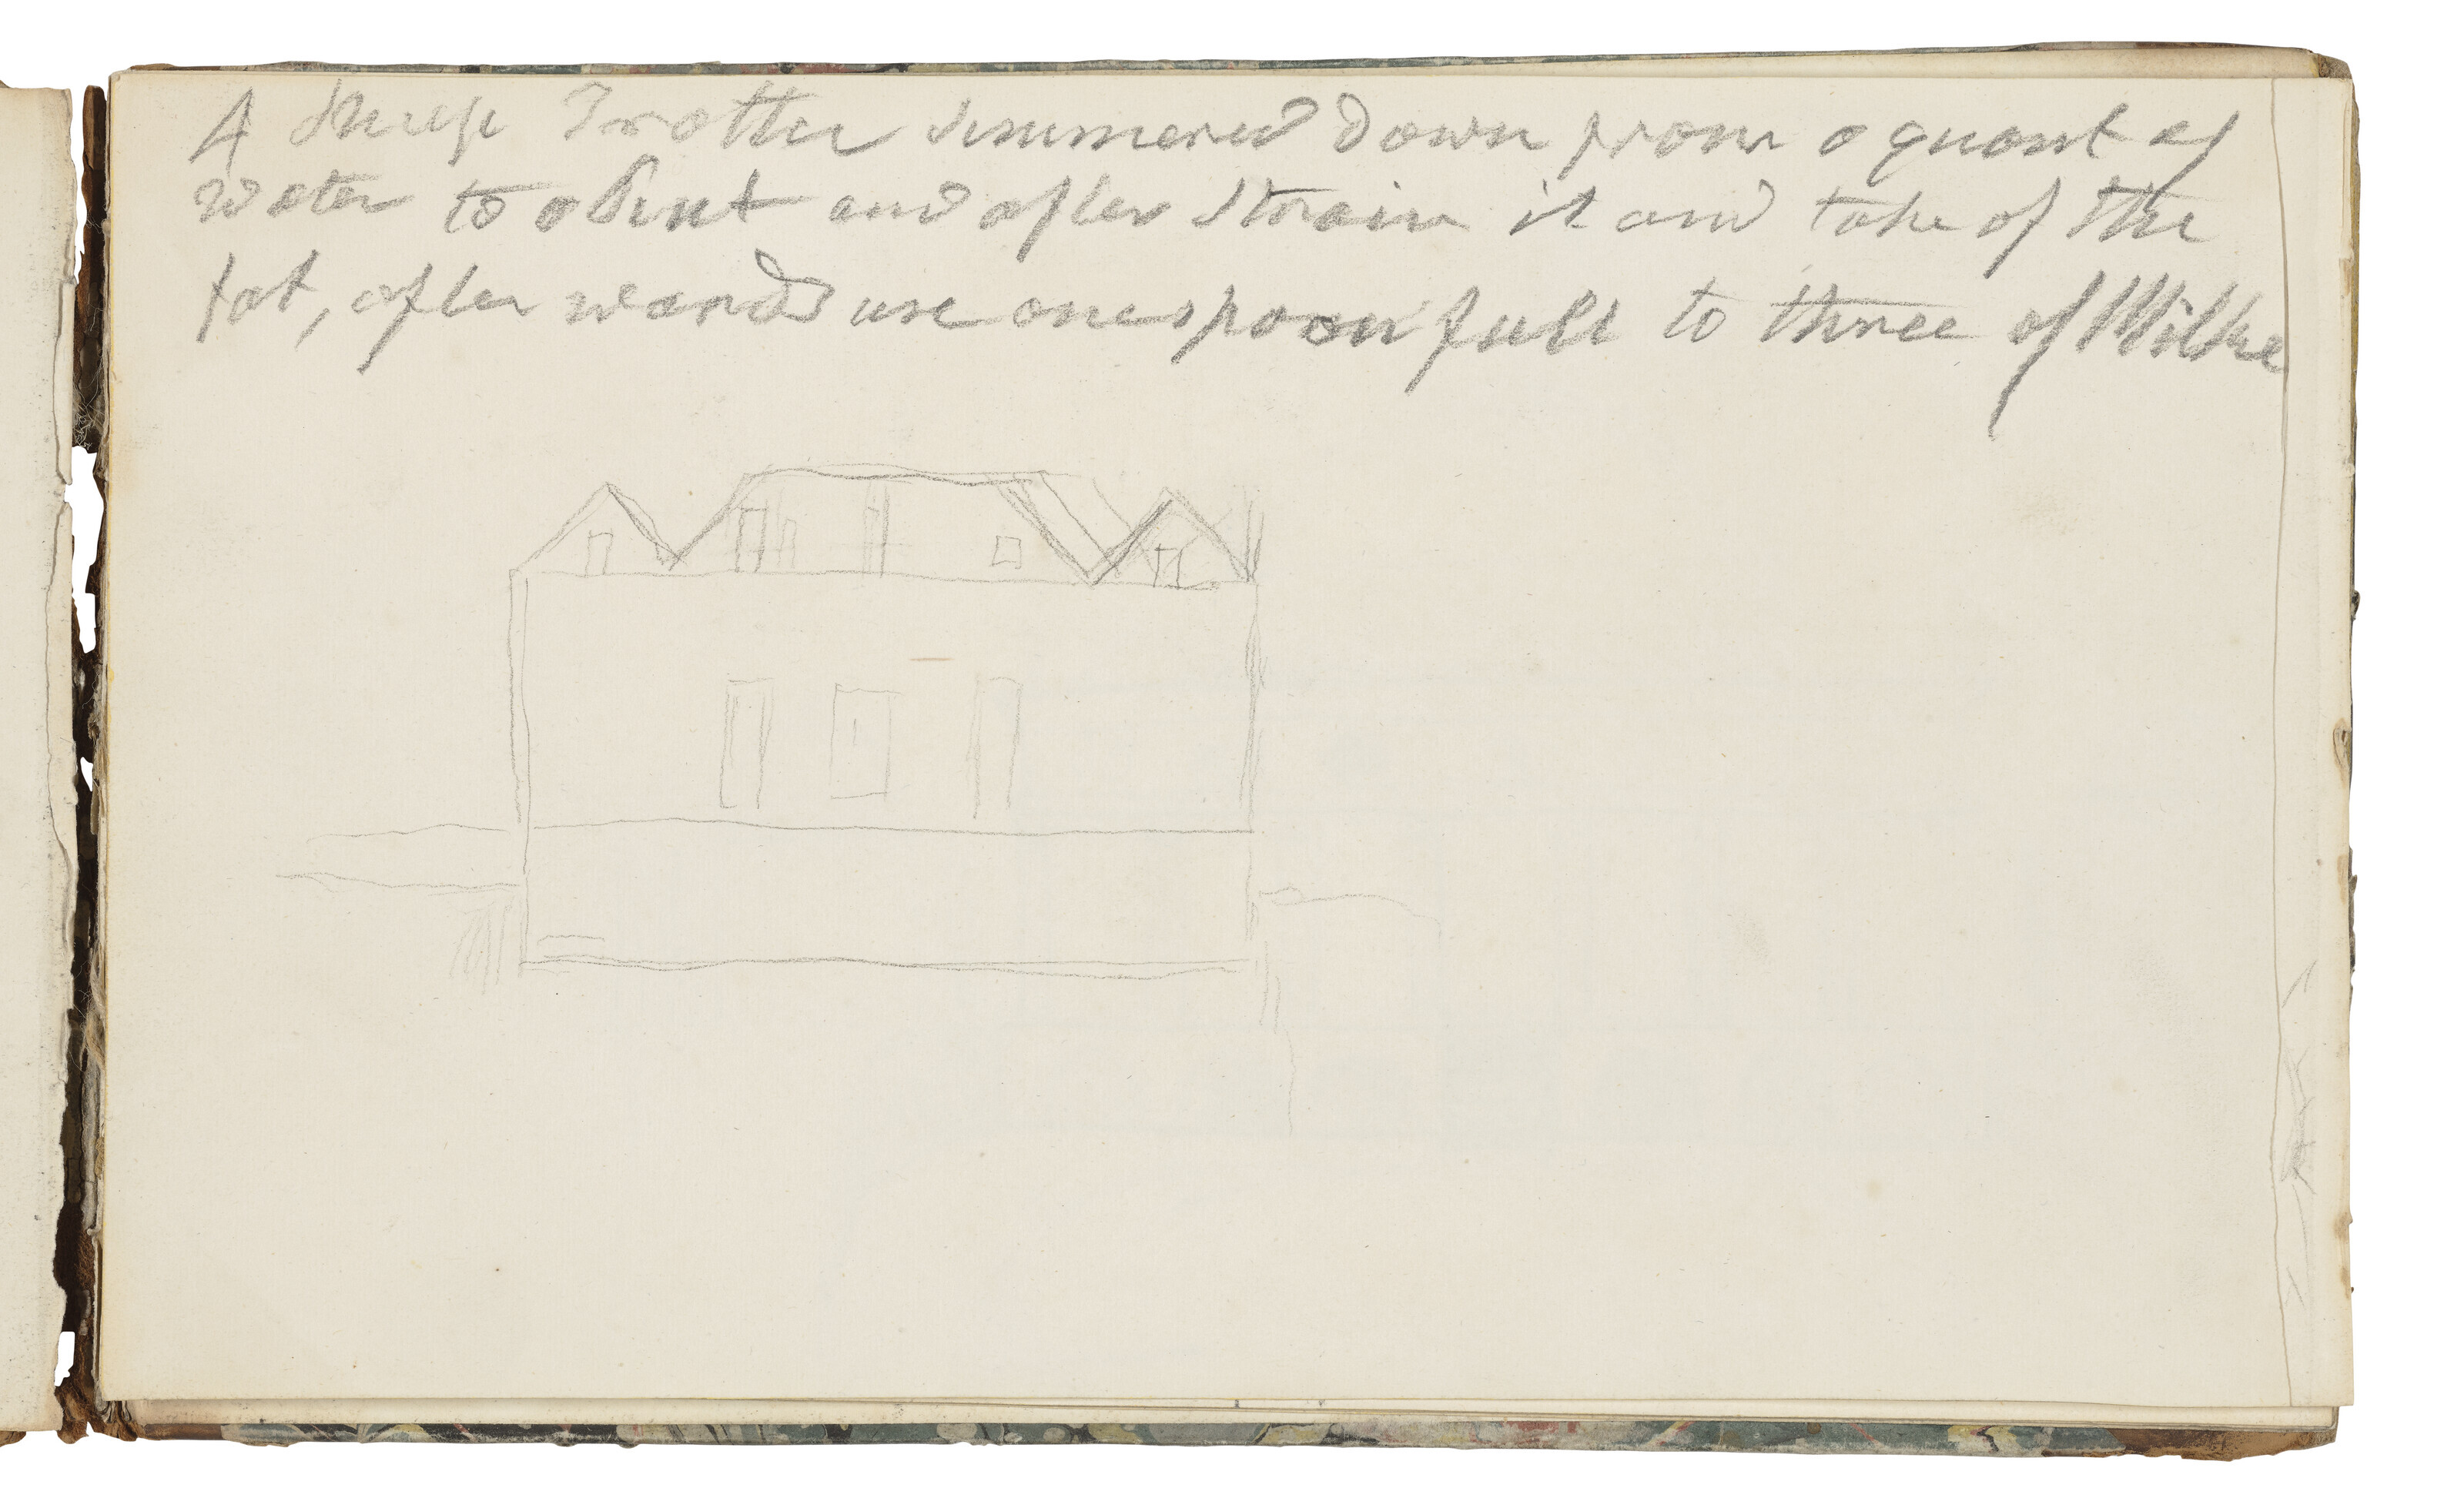 A Sheeps Trotter simmered down from a quart of
water to a Pint and after strain it and take of the
fat, after wards use one spoon full to three of Milke